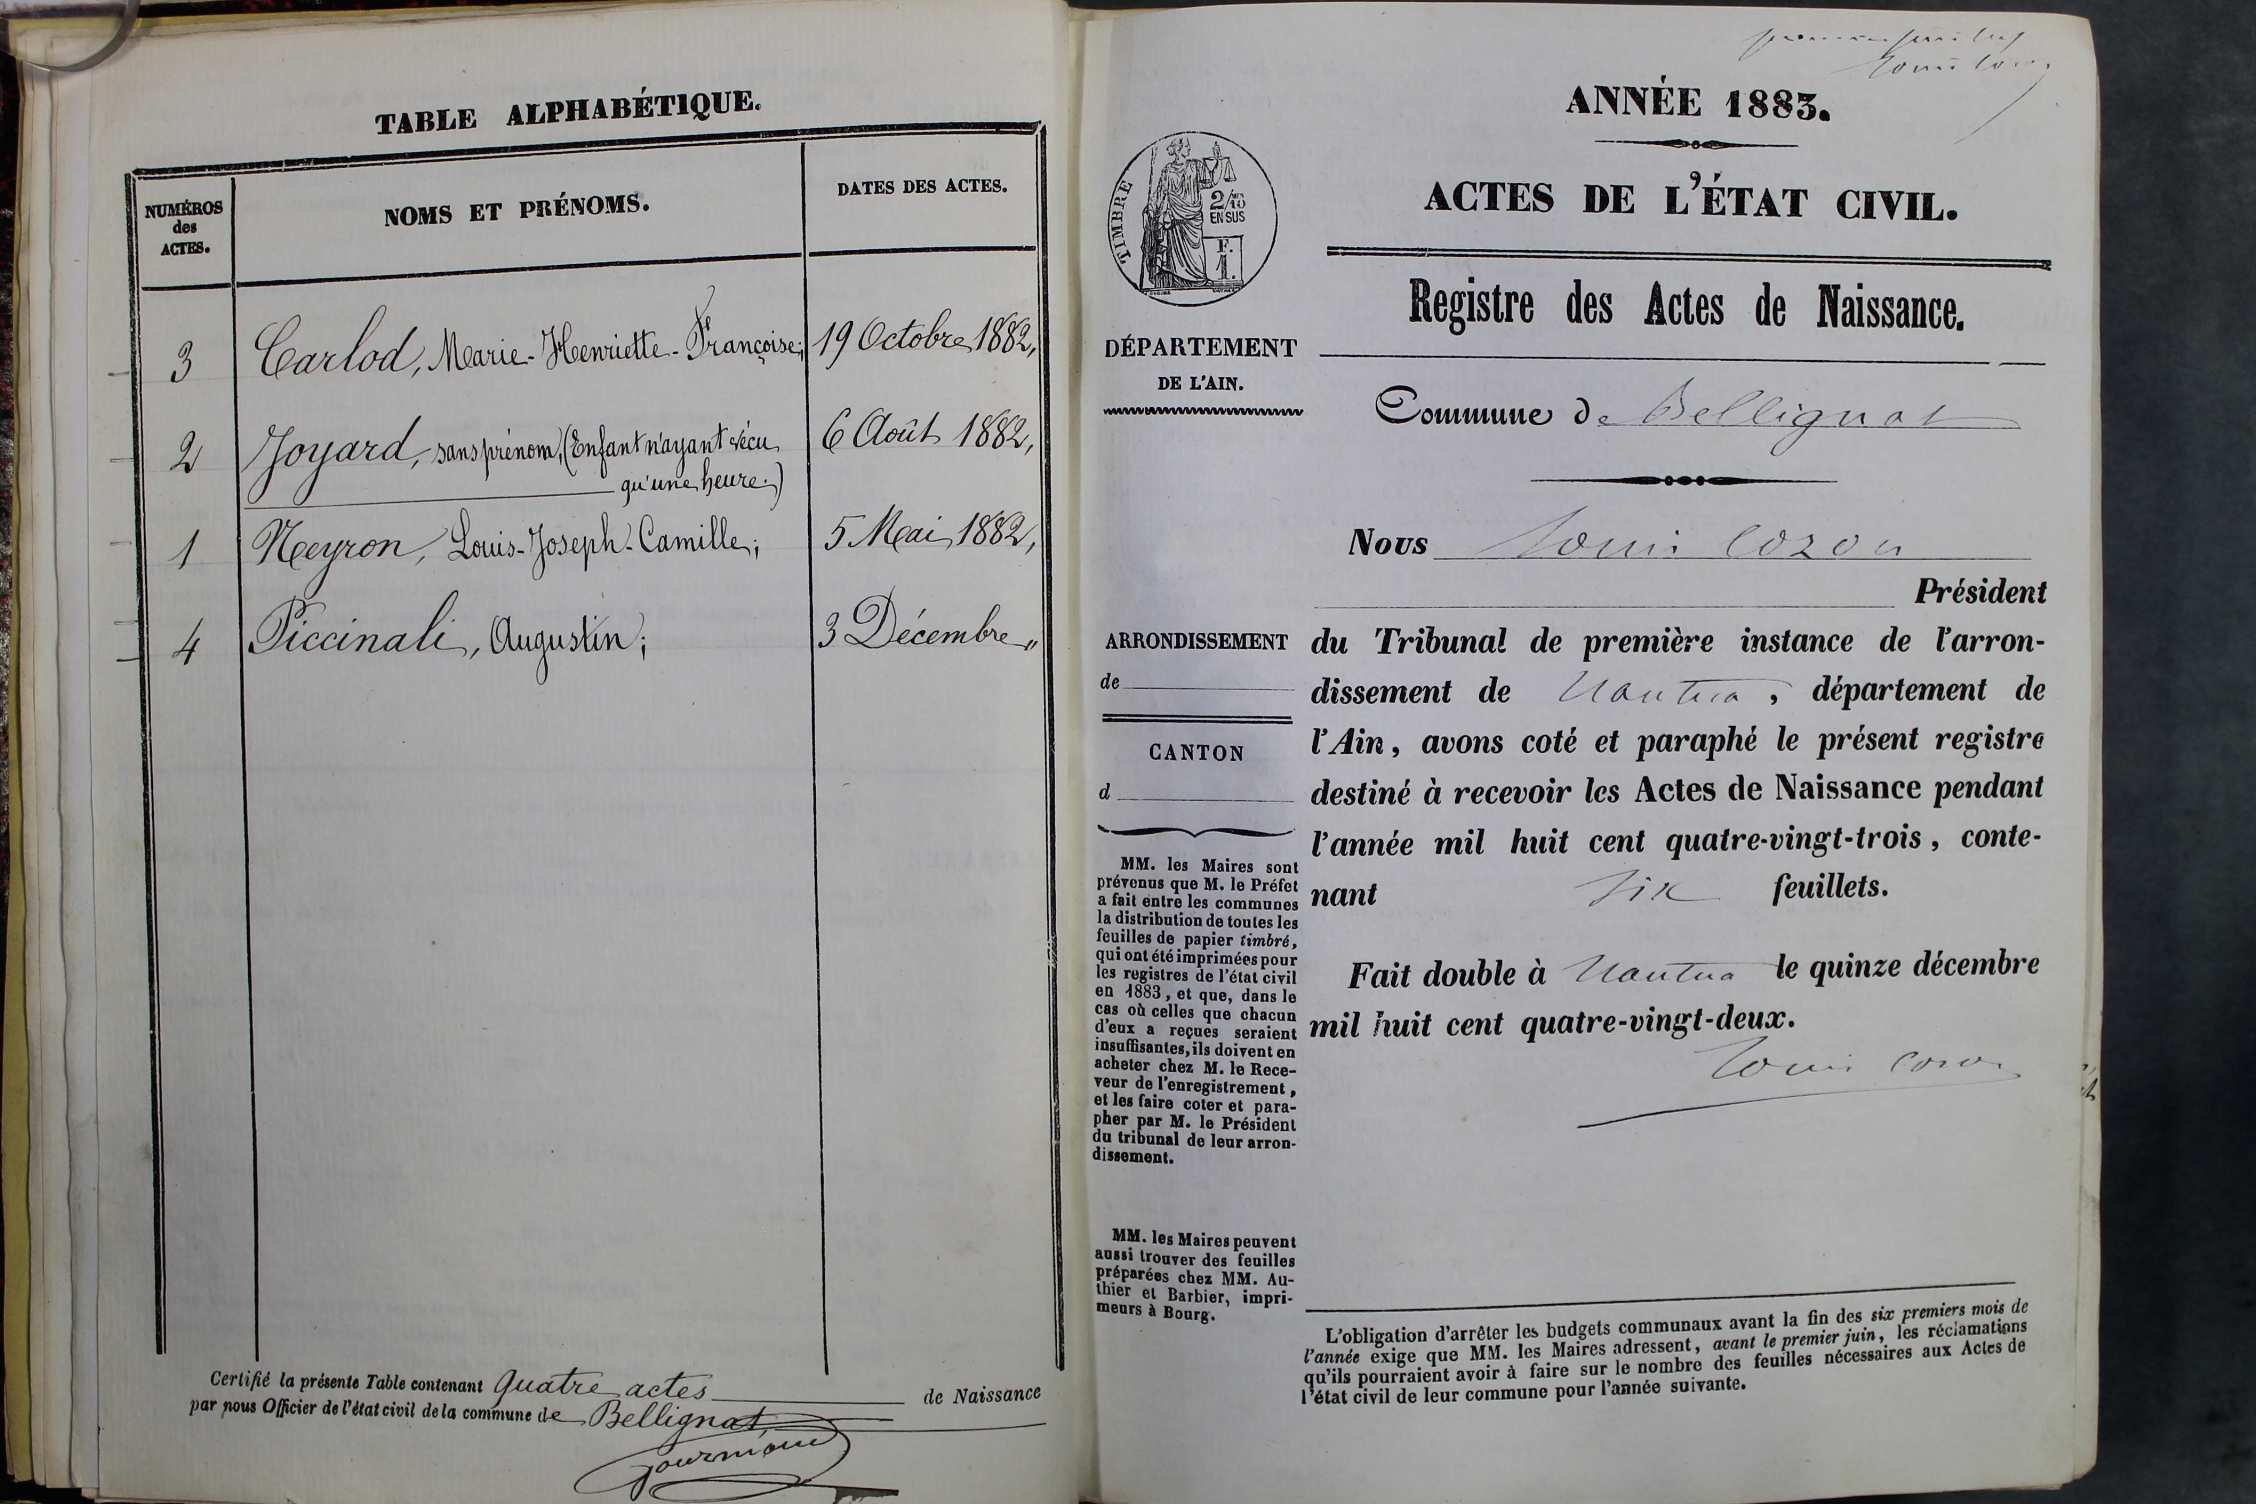 TABLE ALPHABÉTIQUE.
NUMÉROS
des
ACTES.
NOMS ET PRÉNOMS.
DATES DES ACTES.
3 Carlod, Marie-Henriette-Françoise; 19 Octobre 1882,
2 Joyard, sans prénom, (Enfant n'ayant vécu 6 Août 1882,
qu'une heure.)
1 Neyron, Louis-Joseph-Camille; 5 Mai 1882,
4 Piccinali, Augustin; 3 Décembre "
Certifié la présente Table contenant quatre actes de Naissance
par nous Officier de l'état civil de la commune de Bellignat
ANNÉE 1883.
ACTES DE L'ÉTAT CIVIL.
TIMBRE
2/10
EN SUS
F.
1.
Registre des Actes de Naissance.
DÉPARTEMENT
DE L'AIN.
Commune de Bellignat
Nous Louis Cozon
Président
du Tribunal de première instance de l'arron-
dissement de Nantua, département de
l'Ain, avons coté et paraphé le présent registre
destiné à recevoir les Actes de Naissance pendant
l'année mil huit cent quatre-vingt-trois, conte-
nant six feuillets.
Fait double à Nantua le quinze décembre
mil huit cent quatre-vingt-deux.
Louis Cozon
ARRONDISSEMENT
de
CANTON
d
MM. les Maires sont
prévenus que M. le Préfet
a fait entre les communes
la distribution de toutes les
feuilles de papier timbré,
qui ont été imprimées pour
les registres de l'état civil
en 1883, et que, dans le
cas où celles que chacun
d'eux a reçues seraient
insuffisantes, ils doivent en
acheter chez M. le Rece-
veur de l'enregistrement,
et les faire coter et para-
pher par M. le Président
du tribunal de leur arron-
dissement.
MM. les Maires peuvent
aussi trouver des feuilles
préparées chez MM. Au-
thier et Barbier, impri-
meurs à Bourg.
L'obligation d'arrêter les budgets communaux avant la fin des six premiers mois de
l'année exige que MM. les Maires adressent, avant le premier juin, les réclamations
qu'ils pourraient avoir à faire sur le nombre des feuilles nécessaires aux Actes de
l'état civil de leur commune pour l'année suivante.